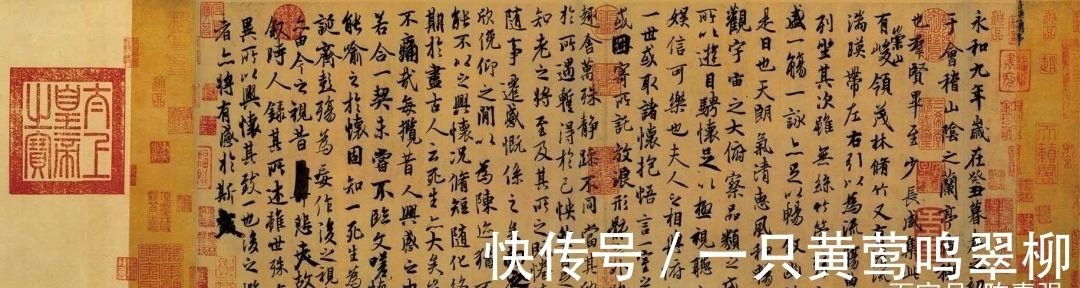 永和九年歲在癸丑暮春之初
于會稽山陰之蘭亭
也群賢畢至少長咸集此
有崇山峻領茂林脩竹又有清流
湍暎帶左右引以為流觴
列坐其次雖無絲竹管
盛一觴一詠亦足以暢
是日也天朗氣清惠風
觀宇宙之大俯察品類之
所以遊目騁懷足以極視聽
娛信可樂也夫人之相與俯
一世或取諸懷抱悟言一室
或因寄所託放浪形骸
趣舍萬殊靜躁不同當其
於所遇暫得於己怏
知老之將至及其所之既惓
隨事遷感慨係之
欣俛仰之閒以為陳迹猶
能不以之興懷況脩短隨化終
期於盡古人云死生亦大矣
不痛哉每攬昔人興感之
若合一契未嘗不臨文嗟
能喻之於懷固知一死生為
誕齊彭殤為妄作後之視
由今之視昔悲夫故
敘時人錄其所述雖世殊
異所以興懷其致一也後之
者亦將有感於斯文
太上皇帝之寶
快传号 / 一只黄莺鸣翠柳